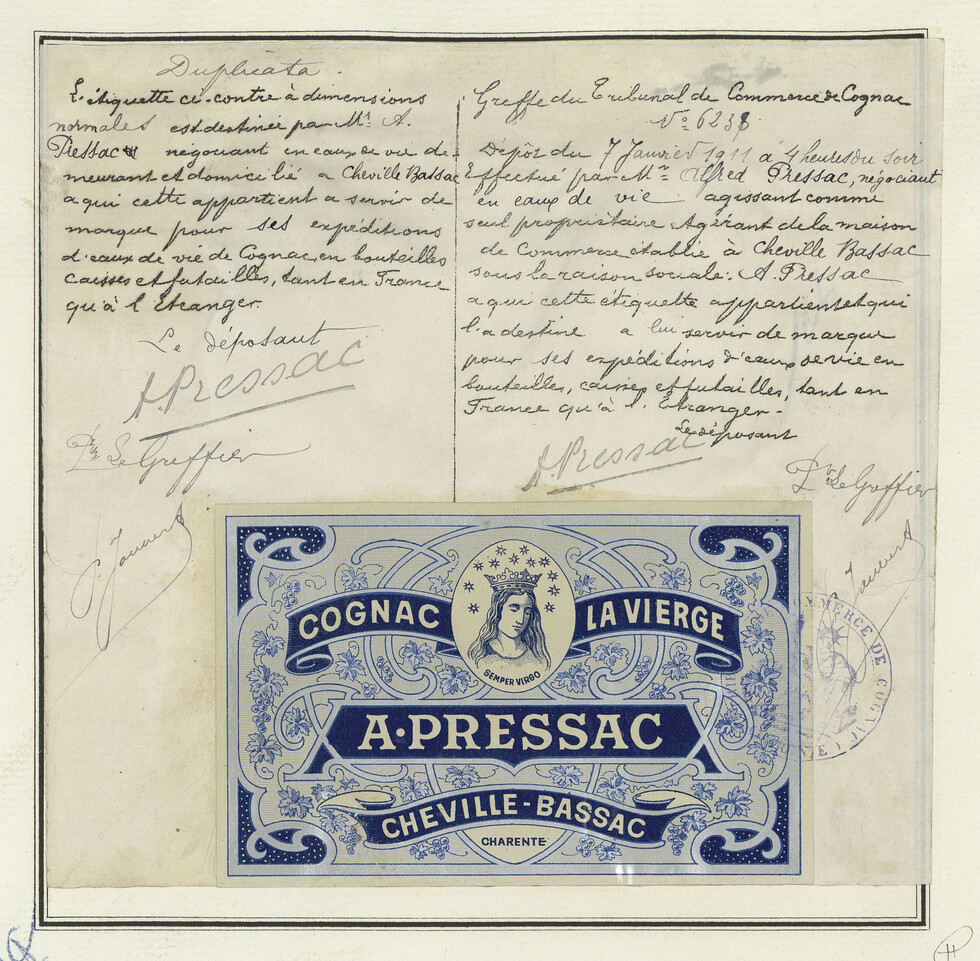 Duplicata.
L'étiquette ci-contre à dimensions
normales est destinée par Mr. A.
Pressac négociant en eaux de vie de-
meurant et domicilié a Cheville Bassac
a qui cette appartient a servir de
marque pour ses expéditions
d'eaux de vie de Cognac, en bouteilles
caisses et futailles, tant en France
qu'à l'étranger.
Le déposant
A. Pressac
Pr. Le Greffier
Greffe du Tribunal de Commerce de Cognac
No 6238
Dépôt du 7 Janvier 1911 à 4 heures du soir
Effectué par Mr Alfred Pressac, négociant
en eaux de vie agissant comme
seul propriétaire & gérant de la maison
de Commerce établie à Cheville Bassac
sous la raison sociale: A. Pressac
a qui cette étiquette appartient et qui
l'a destine a lui servir de marque
pour ses expéditions d'eaux de vie en
bouteilles, caisses et futailles, tant en
France qu'à l'Etranger-
Le déposant
A. Pressac
Pr Le Greffier
COGNAC LA VIERGE
SEMPER VIRGO
A·PRESSAC
CHEVILLE-BASSAC
CHARENTE
COMMERCE DE COGNAC